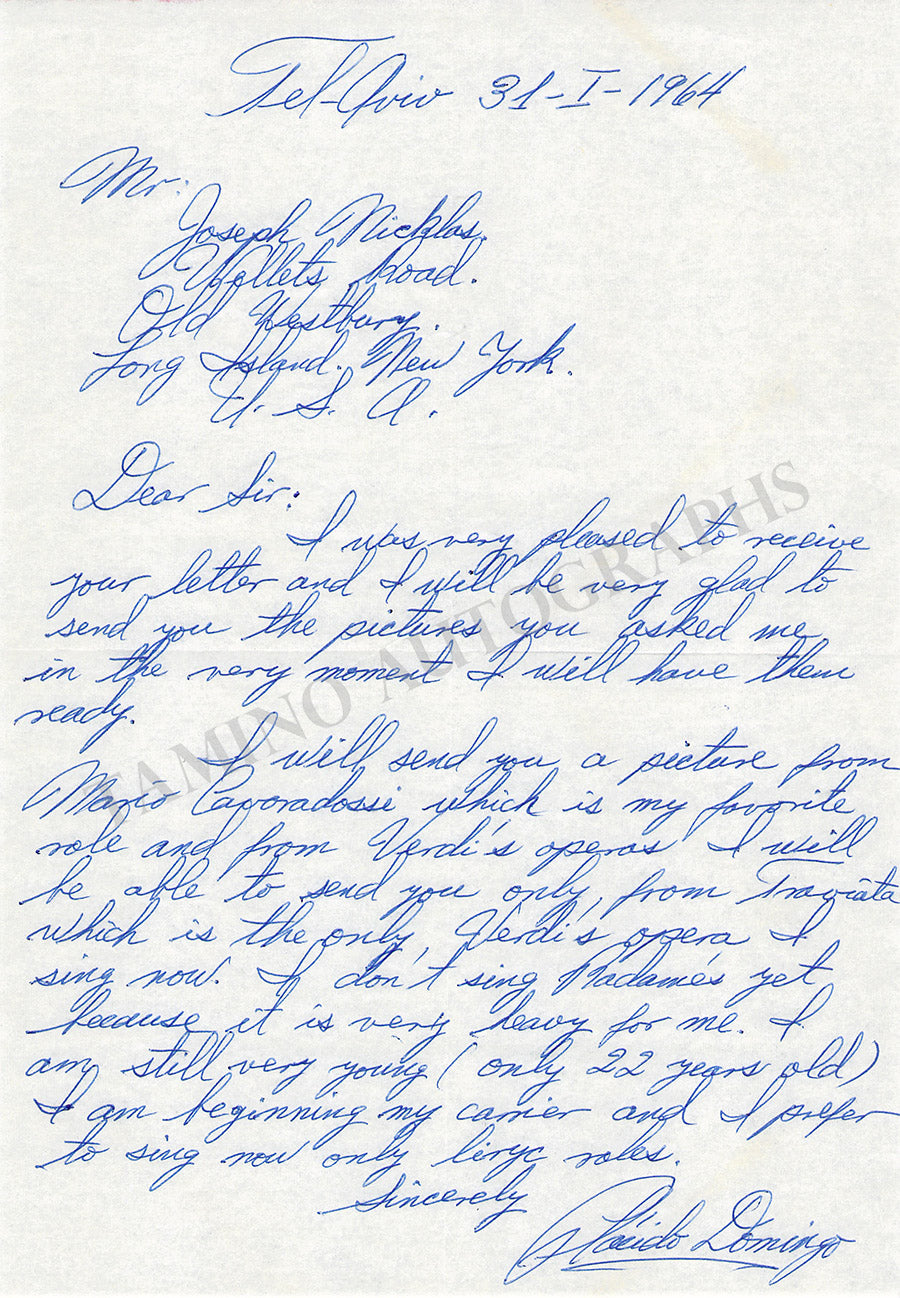 Tel-Aviv 31-I-1964
Mr:
Joseph Nicklas.
Wollets Road.
Old Westbury.
Long Island. New York.
U. S. A.
Dear Sir:
I was very pleased to receive
your letter and I will be very glad to
send you the pictures you asked me
in the very moment I will have them
ready.
I will send you a picture from
Mario Cavaradossi which is my favorite
role and from Verdi's operas I will
be able to send you only, from Traviata
which is the only, Verdi's opera I
sing now. I don't sing Radamés yet
because it is very heavy for me. I
am still very young (only 22 years old)
I am beginning my carrier and I prefer
to sing now only liryc roles.
Sincerely
Plácido Domingo
TAMINO AUTOGRAPHS